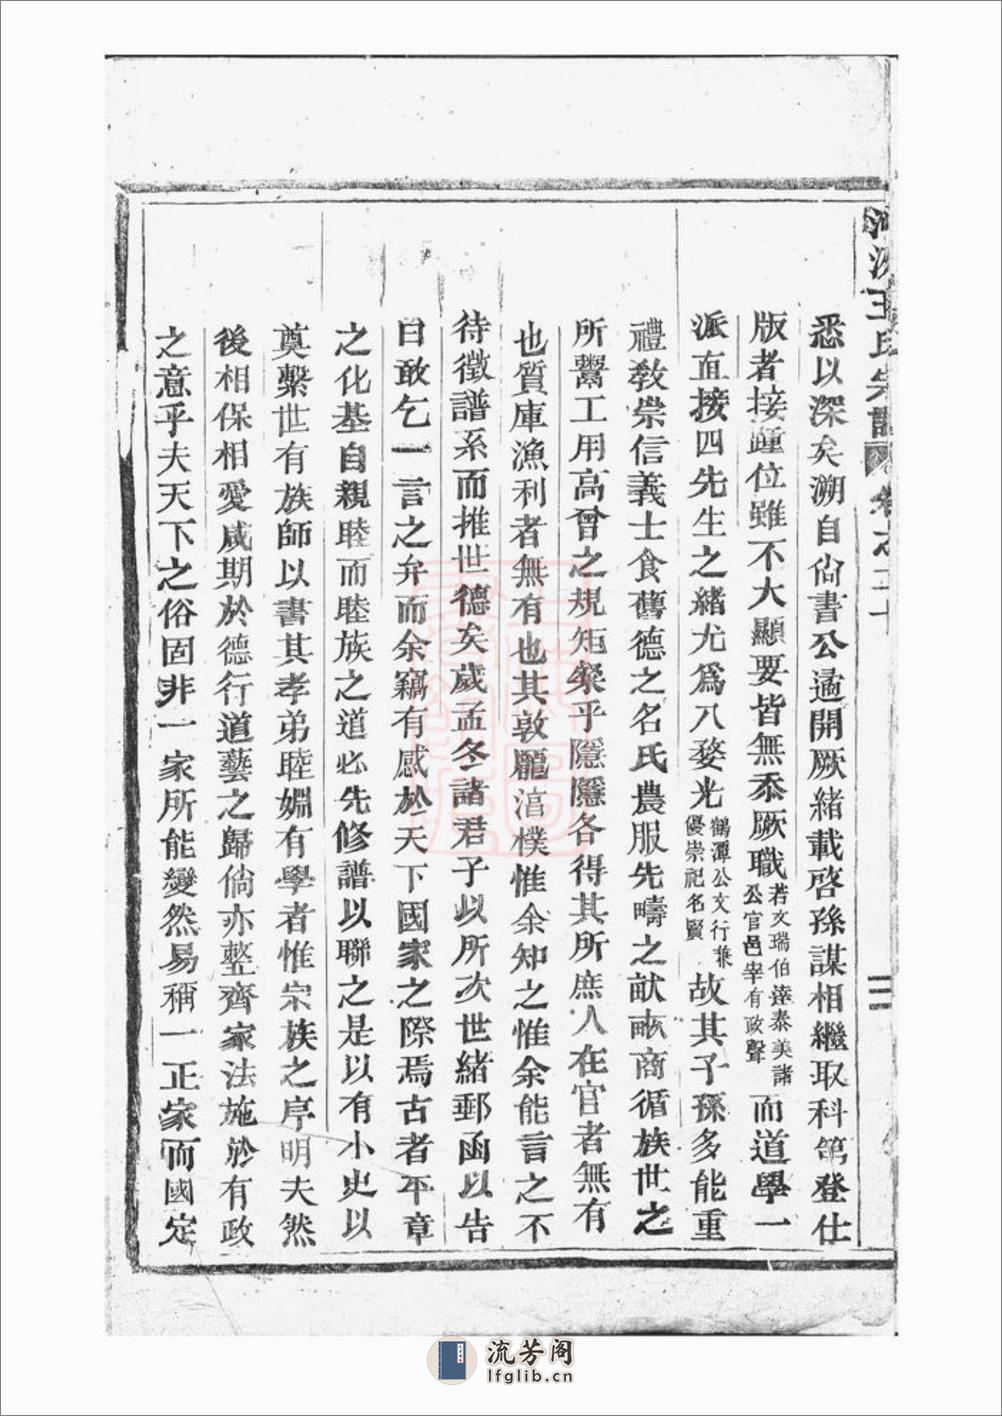 王氏宗譜 卷之二十
悉以深矣溯自尙書公逷開厥緒載啓孫謀相繼取科第登仕
版者接踵位雖不大顯要皆無忝厥職若文瑞伯達泰美諸公官邑宰有政聲而道學一
派直接四先生之緒尤爲八婺光鶴潭公文行兼優崇祀名賢故其子孫多能重
禮敎崇信義士食舊德之名氏農服先疇之畎畝商循族世之
所鬻工用高曾之規矩粲乎隱隱各得其所庶人在官者無有
也質庫漁利者無有也其敦龐湻樸惟余知之惟余能言之不
待徵譜系而推世德矣歲孟冬諸君子以所次世緖郵函以告
曰敢乞一言之弁而余竊有感於天下國家之際焉古者平章
之化基自親睦而睦族之道必先修譜以聯之是以有小史以
奠繫世有族師以書其孝弟睦婣有學者惟宗族之序明夫然
後相保相愛咸期於德行道藝之歸倘亦整齊家法施於有政
之意乎夫天下之俗固非一家所能變然易稱一正家而國定
流芳阁
lfglib.cn